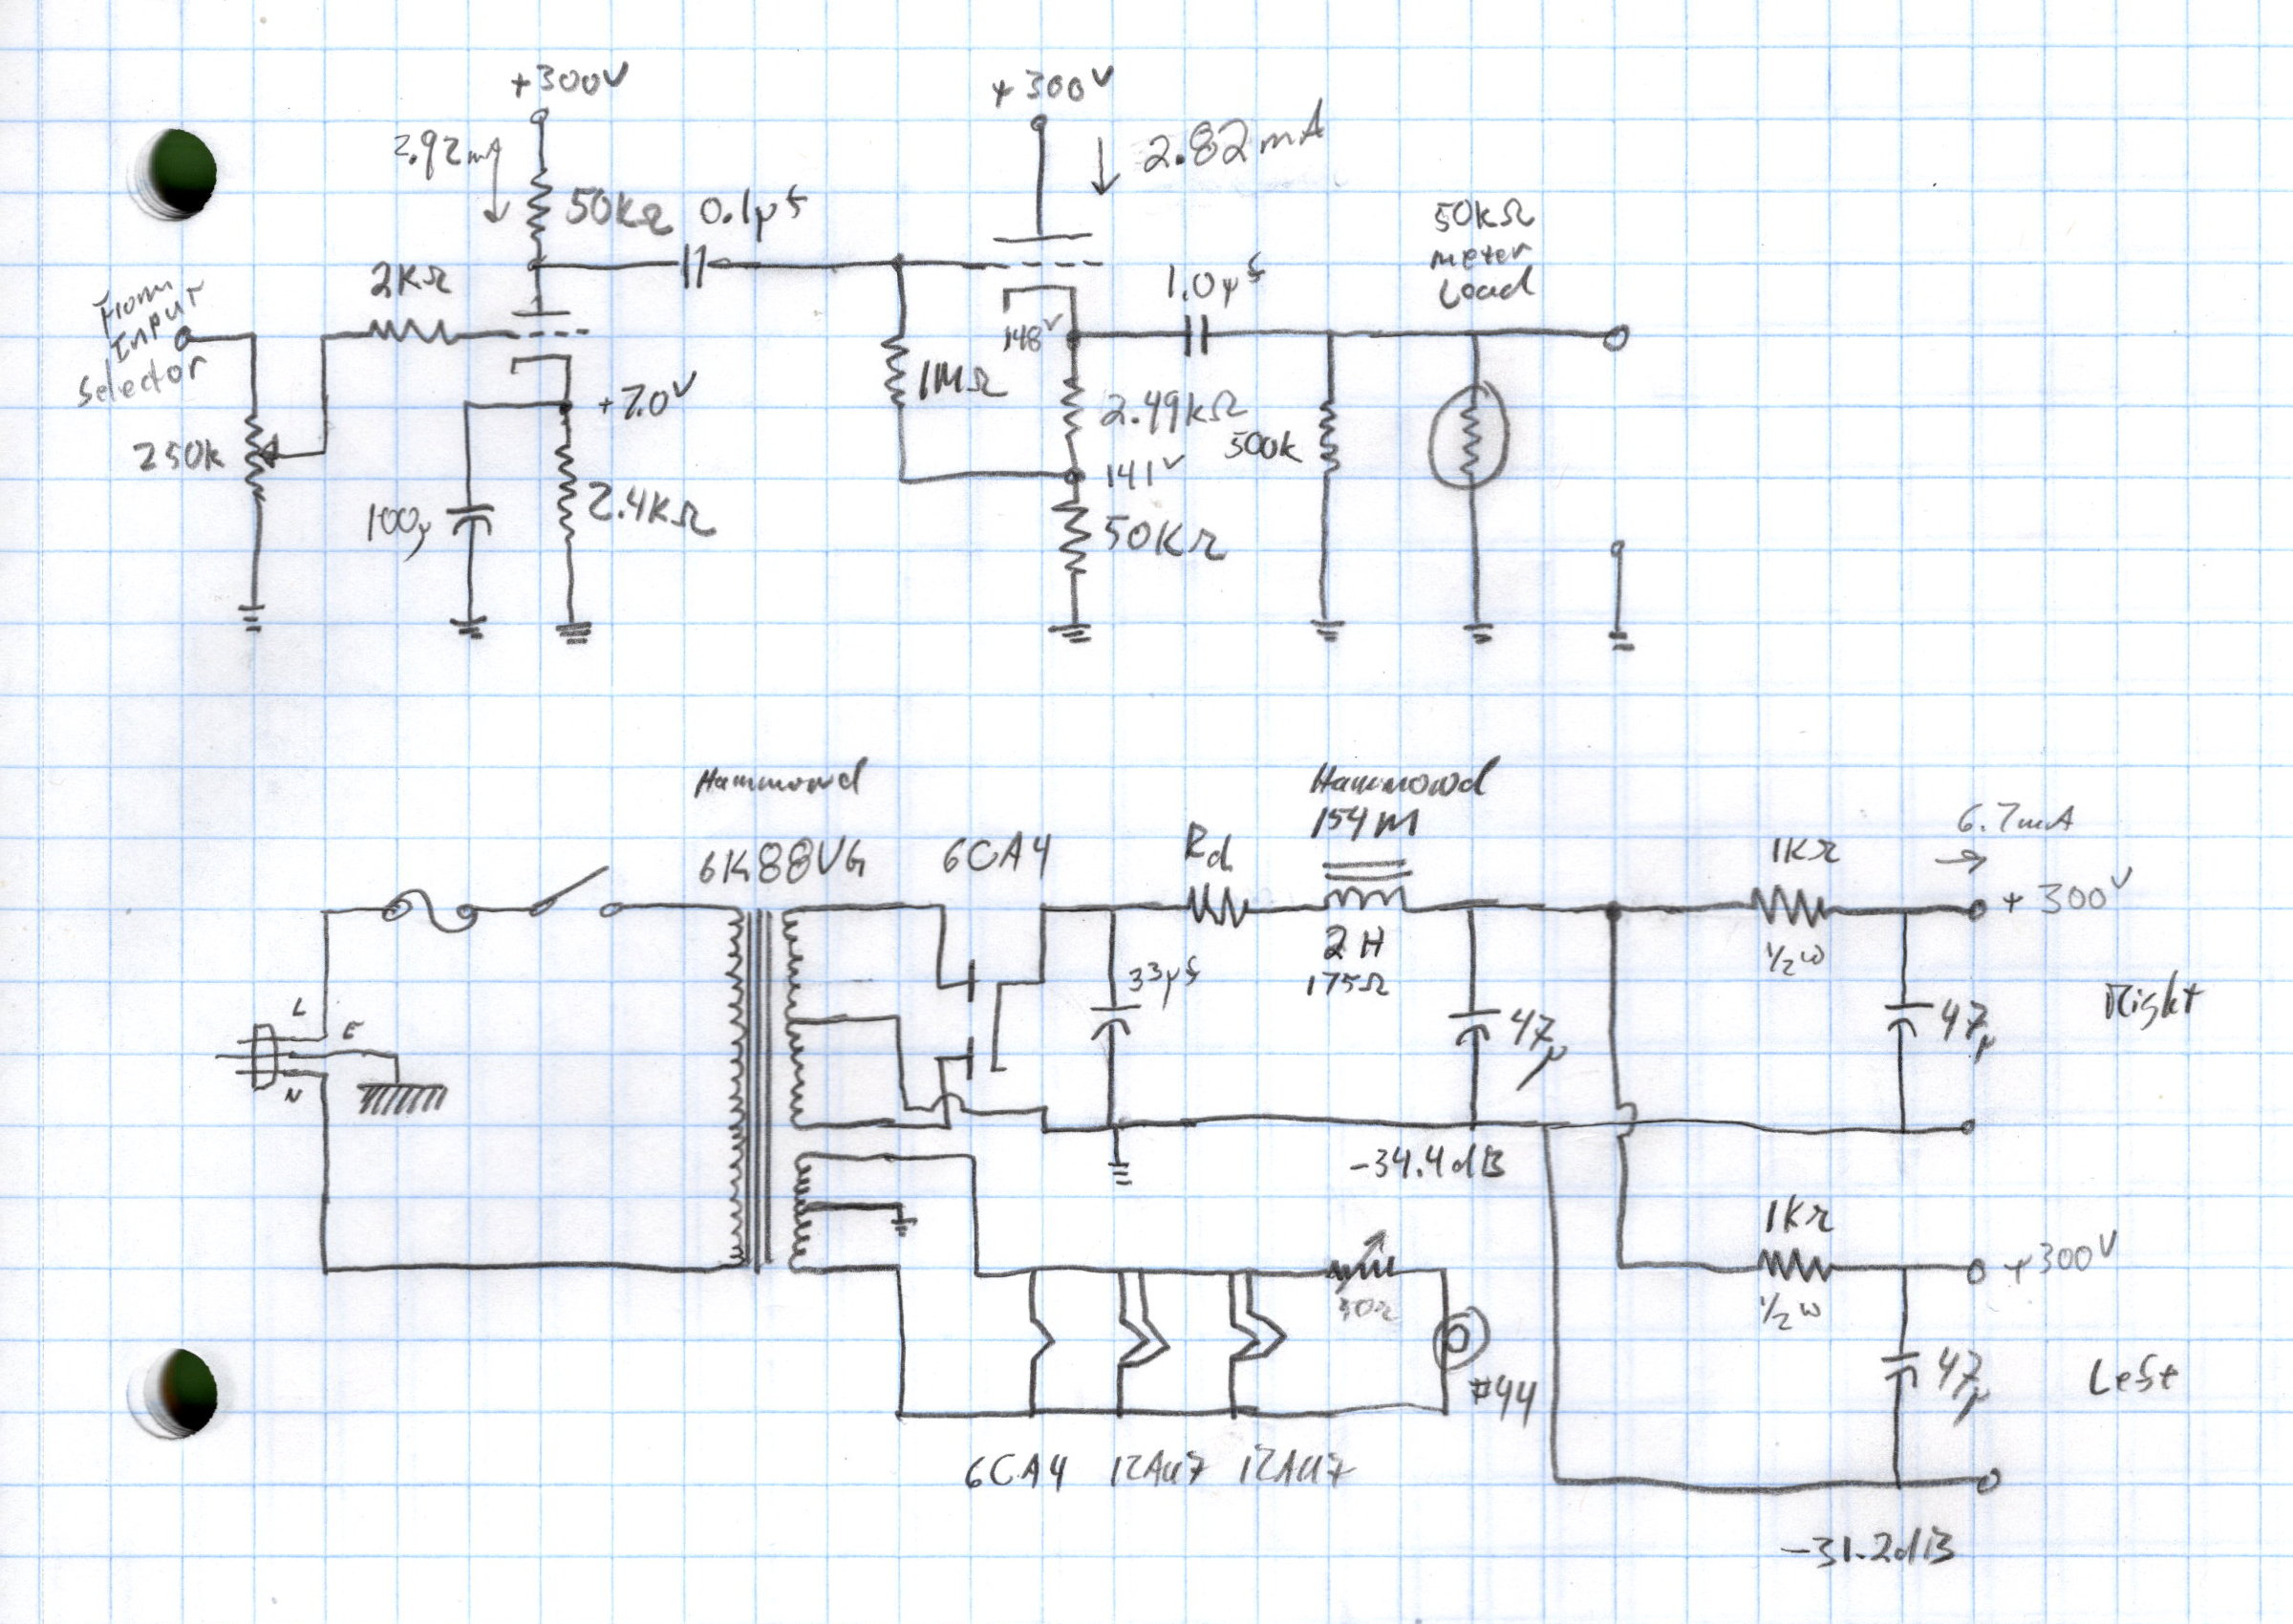 +300V
+300V
2.92mA
2.82mA
50kΩ
0.1μf
50kΩ
meter
Load
2KΩ
1.0μf
From
Input
Selector
148V
+7.0V
1MΩ
2.49kΩ
250k
500k
141V
100μ
2.4KΩ
50KΩ
Hammond
Hammond
154M
6.7mA
6K88VG
6CA4
Rd
1KΩ
+300V
2H
175Ω
1/2W
33μf
L
E
N
47μ
47μ
Right
-34.4dB
1KΩ
+300V
30Ω
1/2W
#44
47μ
Left
6CA4 12AU7 12AU7
-31.2dB